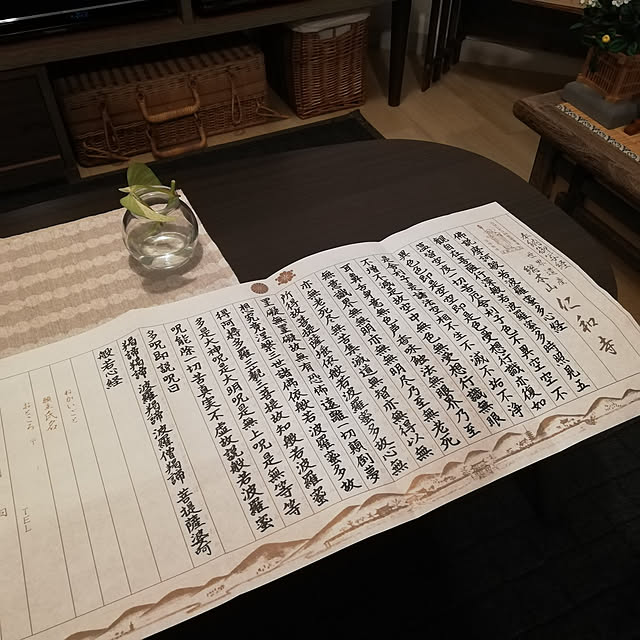 仁和寺
総本山
世界遺産
佛説摩訶般若波羅蜜多心経
観自在菩薩行深般若波羅蜜多時照見五
蘊皆空度一切苦厄舎利子色不異空空不
異色色即是空空即是色受想行識亦復如
是舎利子是諸法空相不生不滅不垢不浄
不増不減是故空中無色無受想行識無眼
耳鼻舌身意無色声香味触法無眼界乃至
無意識界無無明亦無無明尽乃至無老死
亦無老死尽無苦集滅道無智亦無得以無
所得故菩提薩埵依般若波羅蜜多故心無
罣礙無罣礙故無有恐怖遠離一切顛倒夢
想究竟涅槃三世諸佛依般若波羅蜜多故
得阿耨多羅三藐三菩提故知般若波羅蜜
多是大神咒是大明咒是無上咒是無等等
咒能除一切苦真実不虚故説般若波羅蜜
多咒即説咒曰
羯諦羯諦 波羅羯諦 波羅僧羯諦 菩提薩婆訶
般若心経
おねがいごと
願主氏名
おところ 〒
TEL